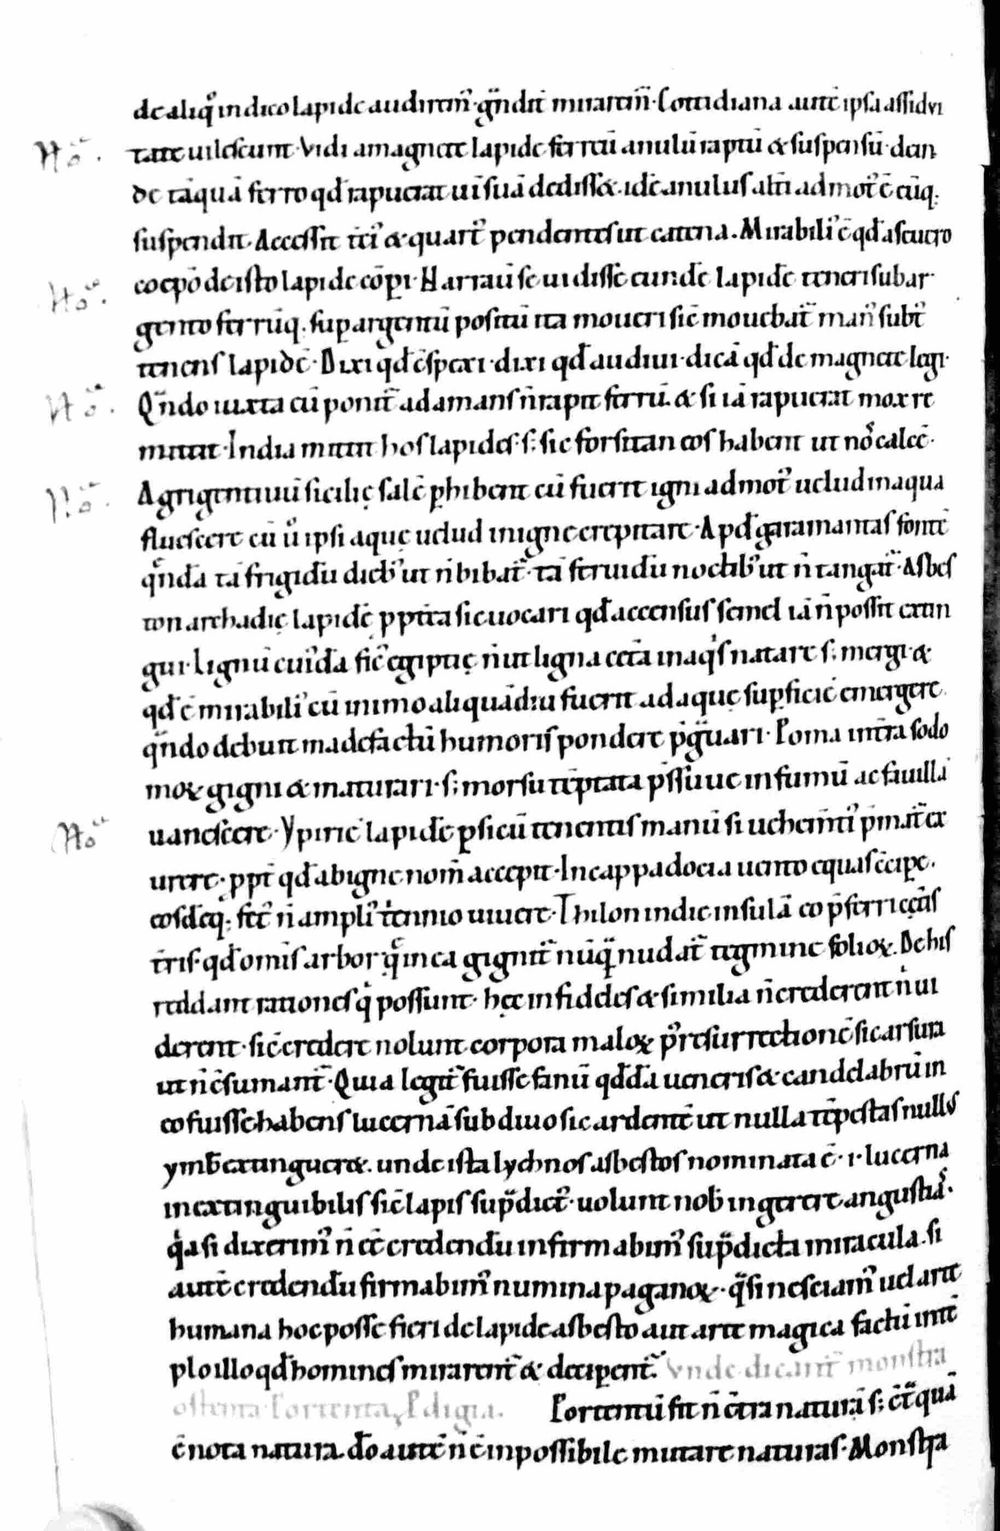 de aliq͛ indico lapide audirem᷒· q̄ndit᷑ mirarem᷒· Cottidiana aut̄ ipsa assidui
Nō. tate uilescunt· Vidi a magnete lapide ferreū anulū raptū & suspensū· dein
de tāquā ferro qd̄ rapuerat uim̄ suā dedisset· idē anulus alt̄i admot᷒ ē eūq;
suspendit· Accessit t̄ci᷒ & quart᷒ pendentes ut catena. Mirabili᷒ ē qd̄ a seuero
Nō. co ep̄o de isto lapide cōperi· Narrauit̄ se uidisse eundē lapidē teneri sub ar
gento ferrūq; sup argentū positū ita moueri sic̄ mouebat᷑ man᷒ subt᷒
tenens lapidē· Dixi qd̄ c̄spexi· dixi qd̄ audiui· dicā qd̄ de magnete legi·
Nō. Qn̄do iuxta eū ponit᷑ adamans n̄ rapit ferrū· & si iā rapuerat mox re
mittit· India mittit hos lapides· s; sic forsitan eos habent ut nos calcē·
Nō. Agrigentinū sicilię salē phibent cū fuerit igni admot᷒ uelud in aqua
fluescere cū u᷒ ipsi aquę uelud in igne crepitare· Apd̄ garamantas fontē
qn̄dā tā frigidū dieb᷒ ut n̄ bibat᷑· tā feruidū noctib᷒ ut n̄ tangat᷑· Asbes
ton archadię lapidē ppt̄ea sic uocari qd̄ accensus semel iā n̄ possit extin
gui· Lignū cui᷒dā fic̄ egiptię n̄ ut ligna cet̄a in aq͛s natare s; mergi &
qd̄ ē mirabili᷒ cū in imo aliquādiu fuerit ad aquę supficiē emergere
qn̄do debuit madefactū humoris pondere p̄g͛uari· Poma in t̄ra sodo
moꝝ gigni & maturari· s; morsu tēptata p̄ssuue in fumū ac fauillā
Nō. uanescere· Ypiritē lapidē psicū tenentis manū si uehem̄ti᷒ p̄mat᷑ ex
urere· ppt̄ qd̄ ab igne nom̄ accepit· In cappadocia uento equas c̄cipe·
eosdēq; fet᷒ n̄ ampli᷒ t̄ennio uiuere· Thilon indię insulā eo p̄ferri cet̄is
t̄ris· qd̄ om̄is arbor q̄ in ea gignit᷑ nūq̄ nudat᷑ tegmine folioꝝ. De his
reddant rationes q͛ possunt· hęc infideles & similia n̄ crederent n͛ ui
derent· sic̄ credere nolunt corpora maloꝝ p᷒ resurrectionē sic arsura
ut n̄ c̄sumant᷑· Quia legit᷑ fuisse fanū qd̄dā ueneris & candelabrū in
eo fuisse habens lucernā sub diuo sic ardentē ut nulla tēpestas nullus
ymb̄ extingueret. unde ista lychnos asbestos nominata ē· ·i· lucerna
inextinguibilis sic̄ lapis sup̄dict᷒· uolunt nob̄ ingerere angustiā·
q͛a si dixerim᷒ n̄ ēē credendū infirmabim᷒ sup̄dicta miracula. si
aut̄ credendū firmabim᷒ numina paganoꝝ· q̄si nesciam᷒ uel arte
humana hoc posse fieri de lapide asbesto aut arte magica factū in tē
plo illo qd̄ homines mirarent᷑ & deciperent᷑. Vnde dicant᷑ monstra
ostenta· Portenta, Pdigia.
Portentū fit n̄ c̄tra naturā s; c̄t̄ quā
ē nota natura. dō aut̄ n̄ ē impossibile mutare naturas· Monstra